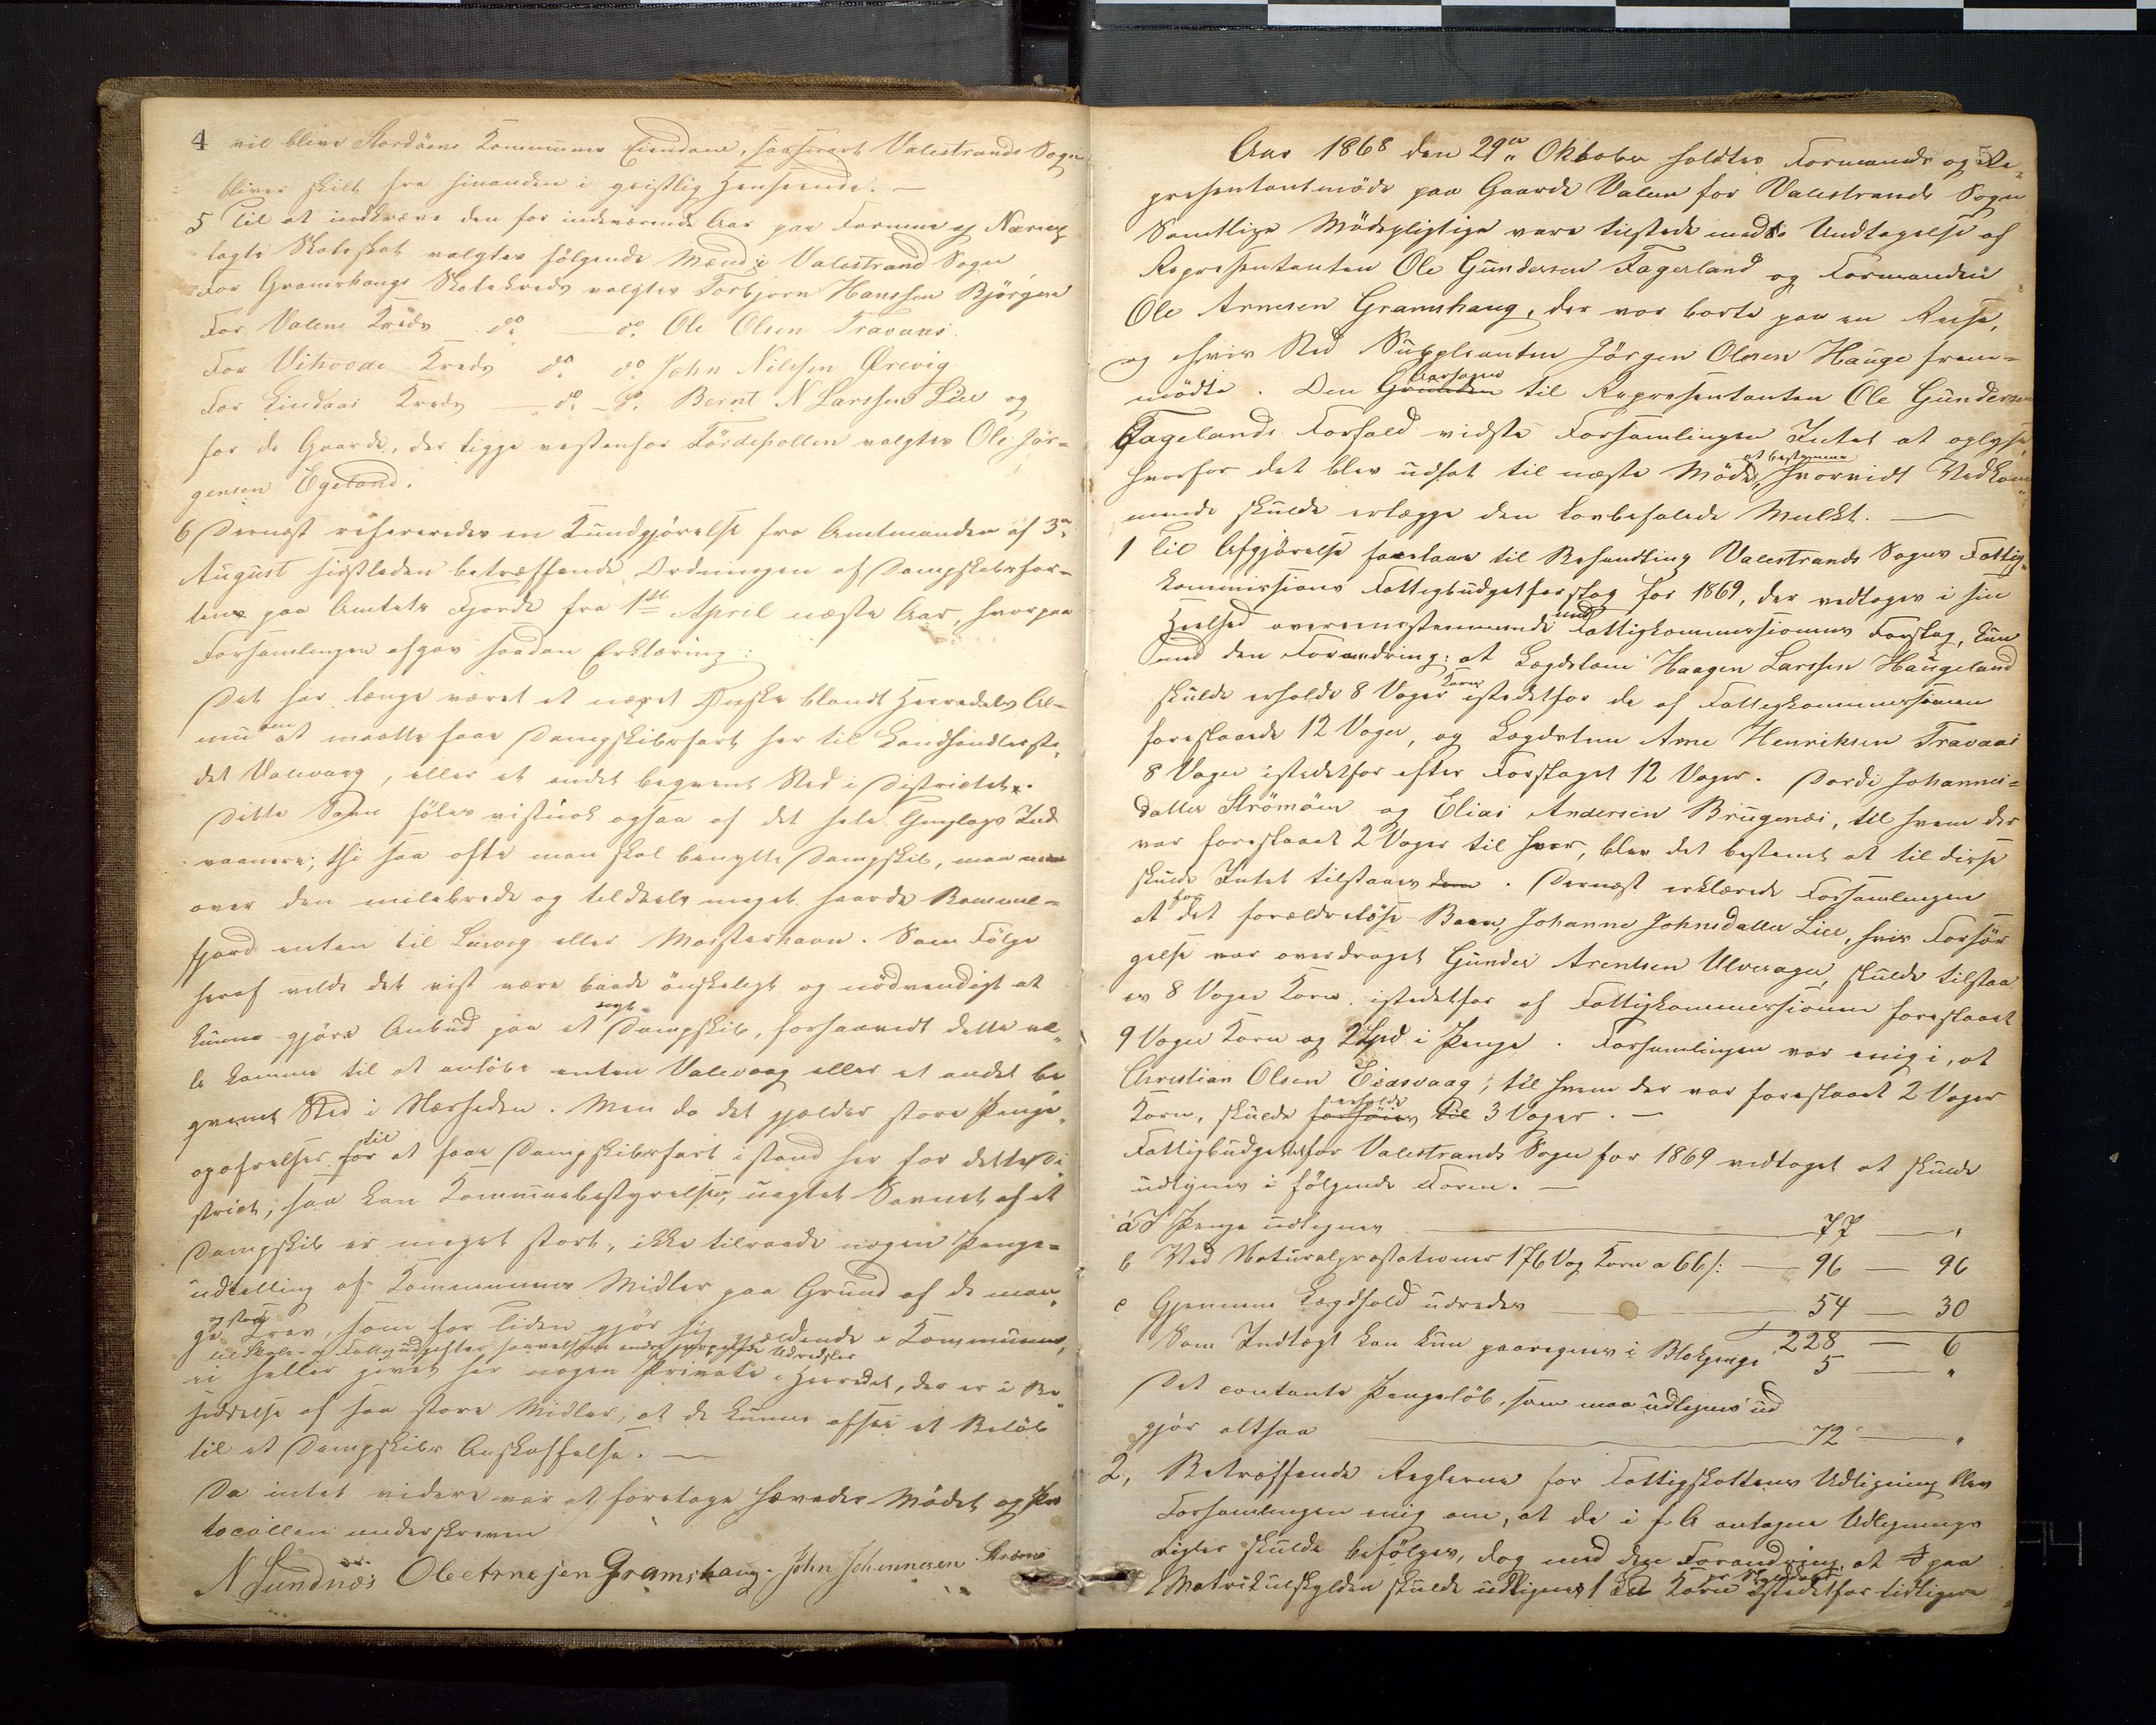 4 vil blive Stordöens Kommunes Eiendom, saafremt Valestrands Sogn
bliver skilt fra hinanden i geistlig Henseende. —
5 Til at indkræve den for indeværende Aar paa Formue og Næring
lagte Skoleskat valgtes fölgende Mænd i Valestrand Sogn
For Gramshaugs Skolekreds valgtes Torbjørn Hanssen Björgen
For Valens Kreds do. — do. Ole Olsen Travaas
For Vihovde Kreds do. do. John Nilssen Ørevig
For Eindaas Kreds — do. — do. Bernt N Larssen Lie og
for de Gaarde, der ligge vestenfor Fördespollen valgtes Ole Jör-
gensen Egeland.
6 Dernæst refereredes en Kundgjörelse fra Amtmanden af 3de
August sidstleden betræffende Ordningen af Dampskibsfar-
ten paa Amtets Fjorde fra 1ste April næste Aar, hvorpaa
Forsamlingen afgav saadan Erklæring:
Det har længe været et næret Ønske blandt Herredets Al-
muen at maatte faae Dampskibsfart her til Landhandlerste-
det Valevaag, eller et andet beqvemt Sted i Districtet.
Dette Savn föles vistnok ogsaa af det hele Gaglags Ind
vaanere; thi saa ofte man skal benytte Dampskib, maa man
over den milebrede og tildeels meget haarde Bommel-
fjord enten til Lervig eller Mosterhavn. Som Fölge
heraf vilde det vist være baade önskeligt og nödvendigt at
kunne gjöre Anbud paa et sagt Dampskib, forsaavidt dette vil-
le komme til at anlöbe enten Valevaag eller et andet be
qvemt Sted i Nærheden. Men da det gjælder store Penge-
opofrelser for til at faae Dampskibsfart istand her for dette Di
strict, saa kan Kommunebestyrelsen, uagtet Savnet af et
Dampskib er meget stort, ikke tilraade nogen Penge-
udtælling af Kommunens Midler paa Grund af de man-
ge og store Krav, som for Tiden gjör sig gjældende i Kommunen,
til Skole- og Fattigudgifter saavelsom andre Udredsler
ei heller gives her nogen Private i Herredet, der er i Be
siddelse af saa store Midler, at de kunne afsee et Belöb
til et Dampskibs Anskaffelse. —
Da intet videre var at foretage hævedes Mödet og Pro
tocollen underskreven
N Sundnæs Ole Arnesen Gramshaug. John Johannesen Strömö
5
Aar 1868 den 29de Oktober holdtes Formands og Re-
presentantmöde paa Gaarde Valen for Valestrands Sogn
Samtlige Mödepligtige vare tilstede med Undtagelse af
Repræsentanten Ole Gundersen Fagerland og Formanden
Ole Arnesen Gramshaug, der var borte paa en Reise,
og i hvis Sted Suppleanten Jörgen Olsen Hauge frem-
mödte. Den Grunden Aarsagen til Repræsentanten Ole Gundersen
Fagelands Forfald vidste Forsamlingen Intet at oplyse,
hvorfor det blev udsat til næste Möde, at bestemme hvorvidt Vedkom
mende skulde erlægge den lovbefalede Mulkt. —
1 Til Afgjörelse foretages til Behandling Valestrands Sogns Fattig-
kommissions Fattigbudgetforslag for 1869, der vedtoges i sin
Heelhed overensstemmende med Fattigkommissionens Forslag, kun
med den Forandring: at Lægdslem Haagen Larssen Haugeland
skulde erholde 8 Voger Korn istedetfor de af Fattigkommissionen
foreslaaede 12 Voger, og Lægdslem Arne Henriksen Travaas
8 Voger istedetfor efter Forslaget 12 Voger. Dordi Johannes-
datter Strömöen og Elias Andersen Brugenæs, til hvem der
var foreslaaet 2 Voger til hver, blev det bestemt at til disse
skulde Intet tilstaaes dem. Dernæst erklærede Forsamlingen
at for det forældrelöse Barn, Johanne Johnsdatter Lie, hvis Forsör
gelse var overdraget Gunder Arentsen Ulvesager, skulde tilstaa
es 8 Voger Korn, istedetfor af Fattigkommissionen foreslaaet
9 Voger Korn og 2 Spd i Penge. Forsamlingen var enig i, at
Christian Olsen Eidsvaag, til hvem der var foreslaaet 2 Voger
Korn, skulde forhöies til erholde 3 Voger. —
Fattigbudgettet for Valestrands Sogn for 1869 vedtoges at skulde
udlignes i fölgende Form. —
a I Penge udlignes — 77 — "
b Ved Naturalpræstationer 176 Vog Korn a 66 s: — 96 — 96
c Gjennem Lægdhold udredes — 54 — 30
228 — 6
Som Indtægt kan kun paaregnes i Blokpenge 5 — "
Det contante Pengelöb, som maa udlignes ud
gjör altsaa — 72 — "
2, Betræffende Reglerne for Fattigskattens Udligning blev
Forsamlingen enig om, at de i f. A antagne Udlignings
regler skulde befölges, dog med den Forandring at paa
Matrikulskylden skulde udlignes 1 Korn pr Skylddaler istedetfor tidligere